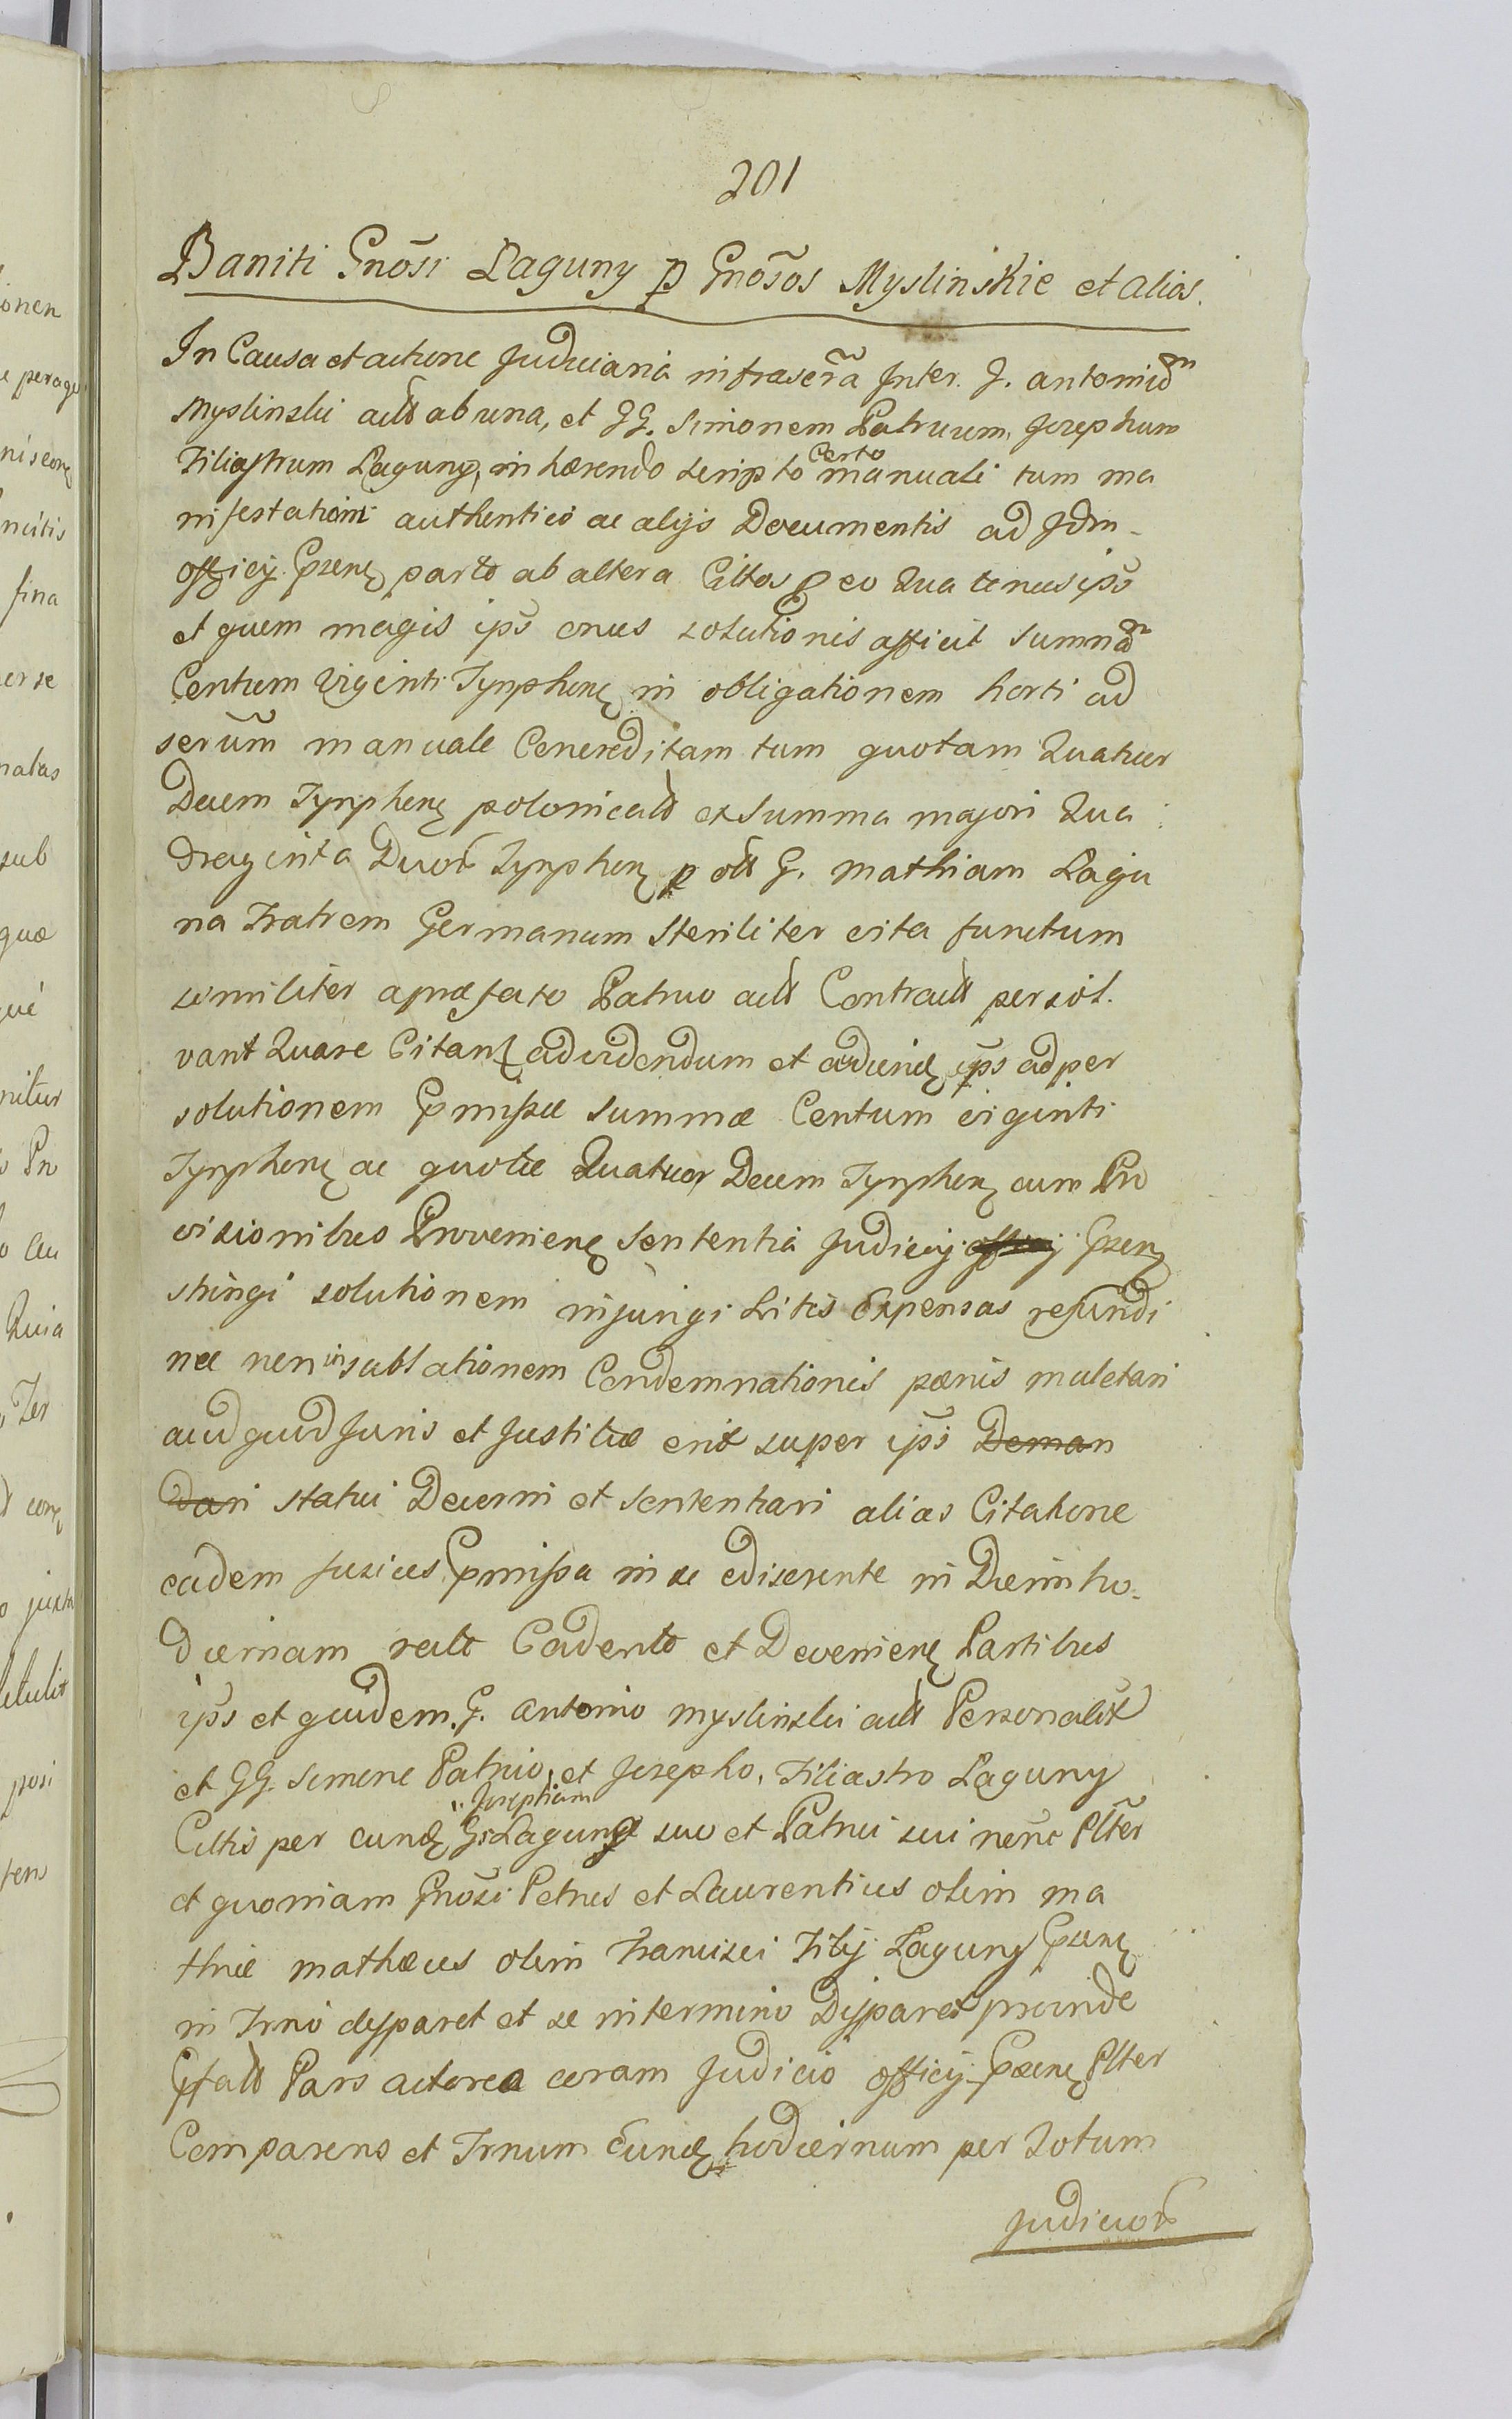 201
Baniti Gnosi Laguny p Gnosos Myslinskie et alios.
In Causa et actione Judiciaria infrascra Inter G. antoniu m
Myslinski actt ab una, et GG. Simonem Patruum, Josephum
Filiastrum Laguny, in hærendo scripto Certo manuali tum ma
nifestationi authentico ac alijs Documentis ad Idm
Officij Gprne parto ab altera Citto p eo Qua tenus ips
et quem magis ips onus solutionis afficit Summa m
Centum Viginti Tynphone in obligationem horti ad
scrum manuale Concreditam tum quotam Quatuor
Decem Tynphone polonicalt ex Summa majori Qua
draginta Duor Tynphone p ott G. Mathiam Lagu
na Fratrem Germanum Steriliter vita functum
similiter a præfato Patruo actt Contractt persol.
vant Quare Citant ad videndum et audiend ips ad per
solutionem Gpmissæ Summæ Centum viginti
Tynphone ac quotæ Quatuor Decem Tynphone cum Pro
visionibus Proveniene Sententia Judicij officij Gprne
stringi solutionem injungi Litis Expensas refundi
nec non in sublationem Condemnationis pænis mulctari
aud quid Juris et Justitiæ erit super ips Deman
dari statui Decerni et Sententiari alias Citatione
eadem fusius Gpmissa in se ediserente in Diem ho-
diernam recto Cadento et Deveniene Partibus
ips et quidem G. Antonio Myslinski actt Personalit
et GG. Simone Patruo, et Josepho, Filiastro Laguny
Cittis per eund G: Josephum Laguny suo et Patrui sui nenc Pltter
et quoniam Gnosi Petrus et Laurentius olim ma
thiæ mathæus olim Francisci Filij Laguny Gprne
in Trno desparet et se intermino Disparet proinde
Gpfatt Pars actorea coram Judicio officij Gprne Pltter
Comparens et Trnum eund hodiernum per Totum
Judicior